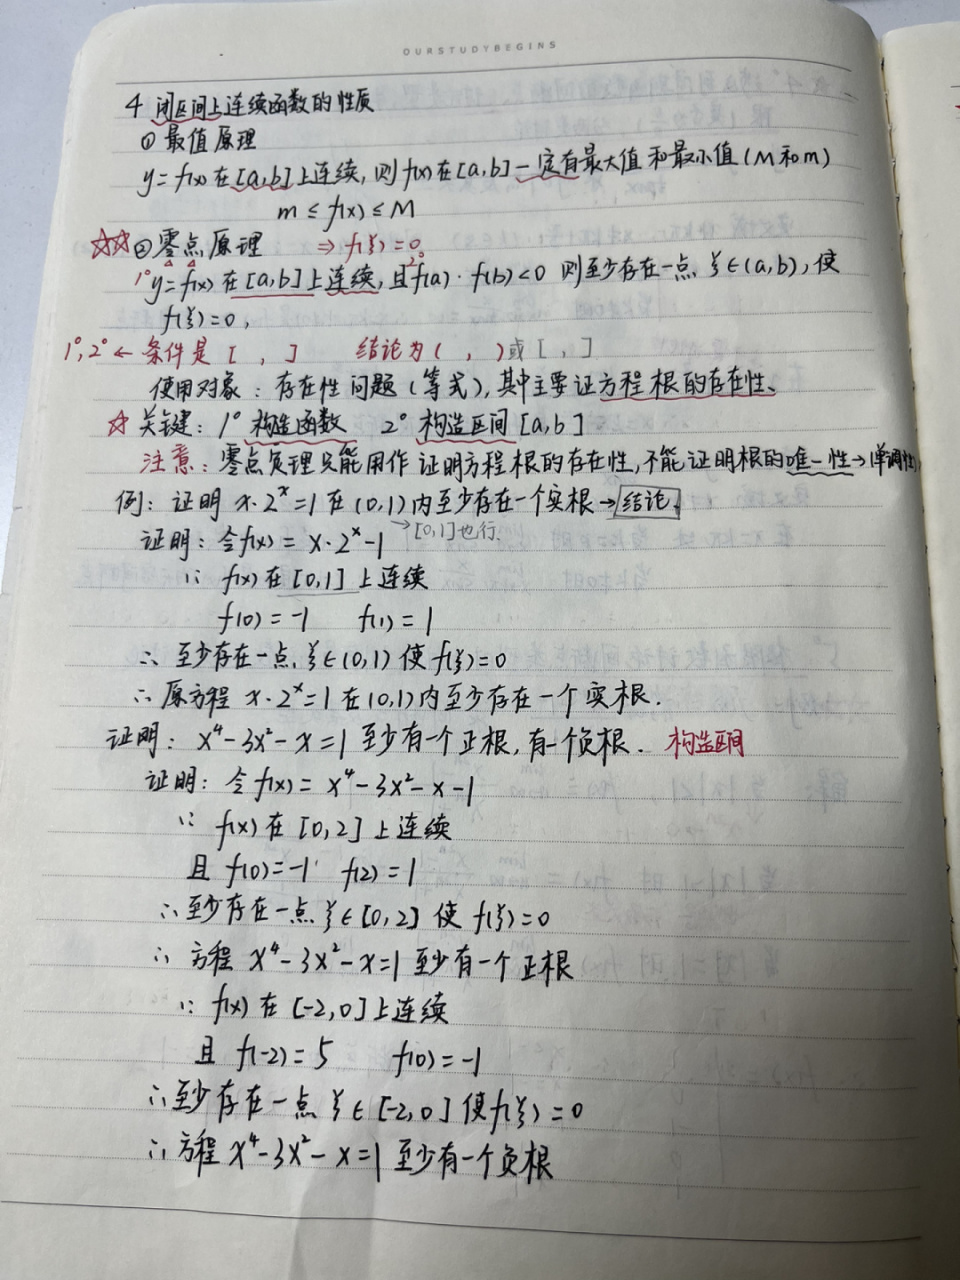 OURSTUDYBEGINS
4 闭区间上连续函数的性质
① 最值原理
y=f(x)在[a,b]上连续,则f(x)在[a,b]一定有最大值和最小值(M和m)
m≤f(x)≤M
☆☆②零点原理 ⇒f(ξ)=0
1° y=f(x)在[a,b]上连续,且2°f(a)·f(b)<0 则至少存在一点 ξ∈(a,b),使
f(ξ)=0,
1°,2°← 条件是[ , ] 结论为( , )或[ , ]
使用对象:存在性问题(等式),其中主要证方程根的存在性、
☆ 关键:1° 构造函数 2° 构造区间[a,b]
注意:零点定理只能用作证明方程根的存在性,不能证明根的唯一性→(单调性)
例:证明 x·2ˣ=1在(0,1)内至少存在一个实根→结论
→[0,1]也行.
证明:令f(x)=x·2ˣ-1
∵ f(x)在[0,1]上连续
f(0)=-1 f(1)=1
∴ 至少存在一点 ξ∈(0,1)使f(ξ)=0
∴ 原方程 x·2ˣ=1在(0,1)内至少存在一个实根.
证明:x⁴-3x²-x=1至少有一个正根,有一个负根. 构造区间
证明:令f(x)=x⁴-3x²-x-1
∵ f(x)在[0,2]上连续
且 f(0)=-1 f(2)=1
∴至少存在一点ξ∈[0,2]使 f(ξ)=0
∴ 方程 x⁴-3x²-x=1至少有一个正根
∵ f(x)在[-2,0]上连续
且 f(-2)=5 f(0)=-1
∴至少存在一点 ξ∈[-2,0]使f(ξ)=0
∴方程 x⁴-3x²-x=1至少有一个负根